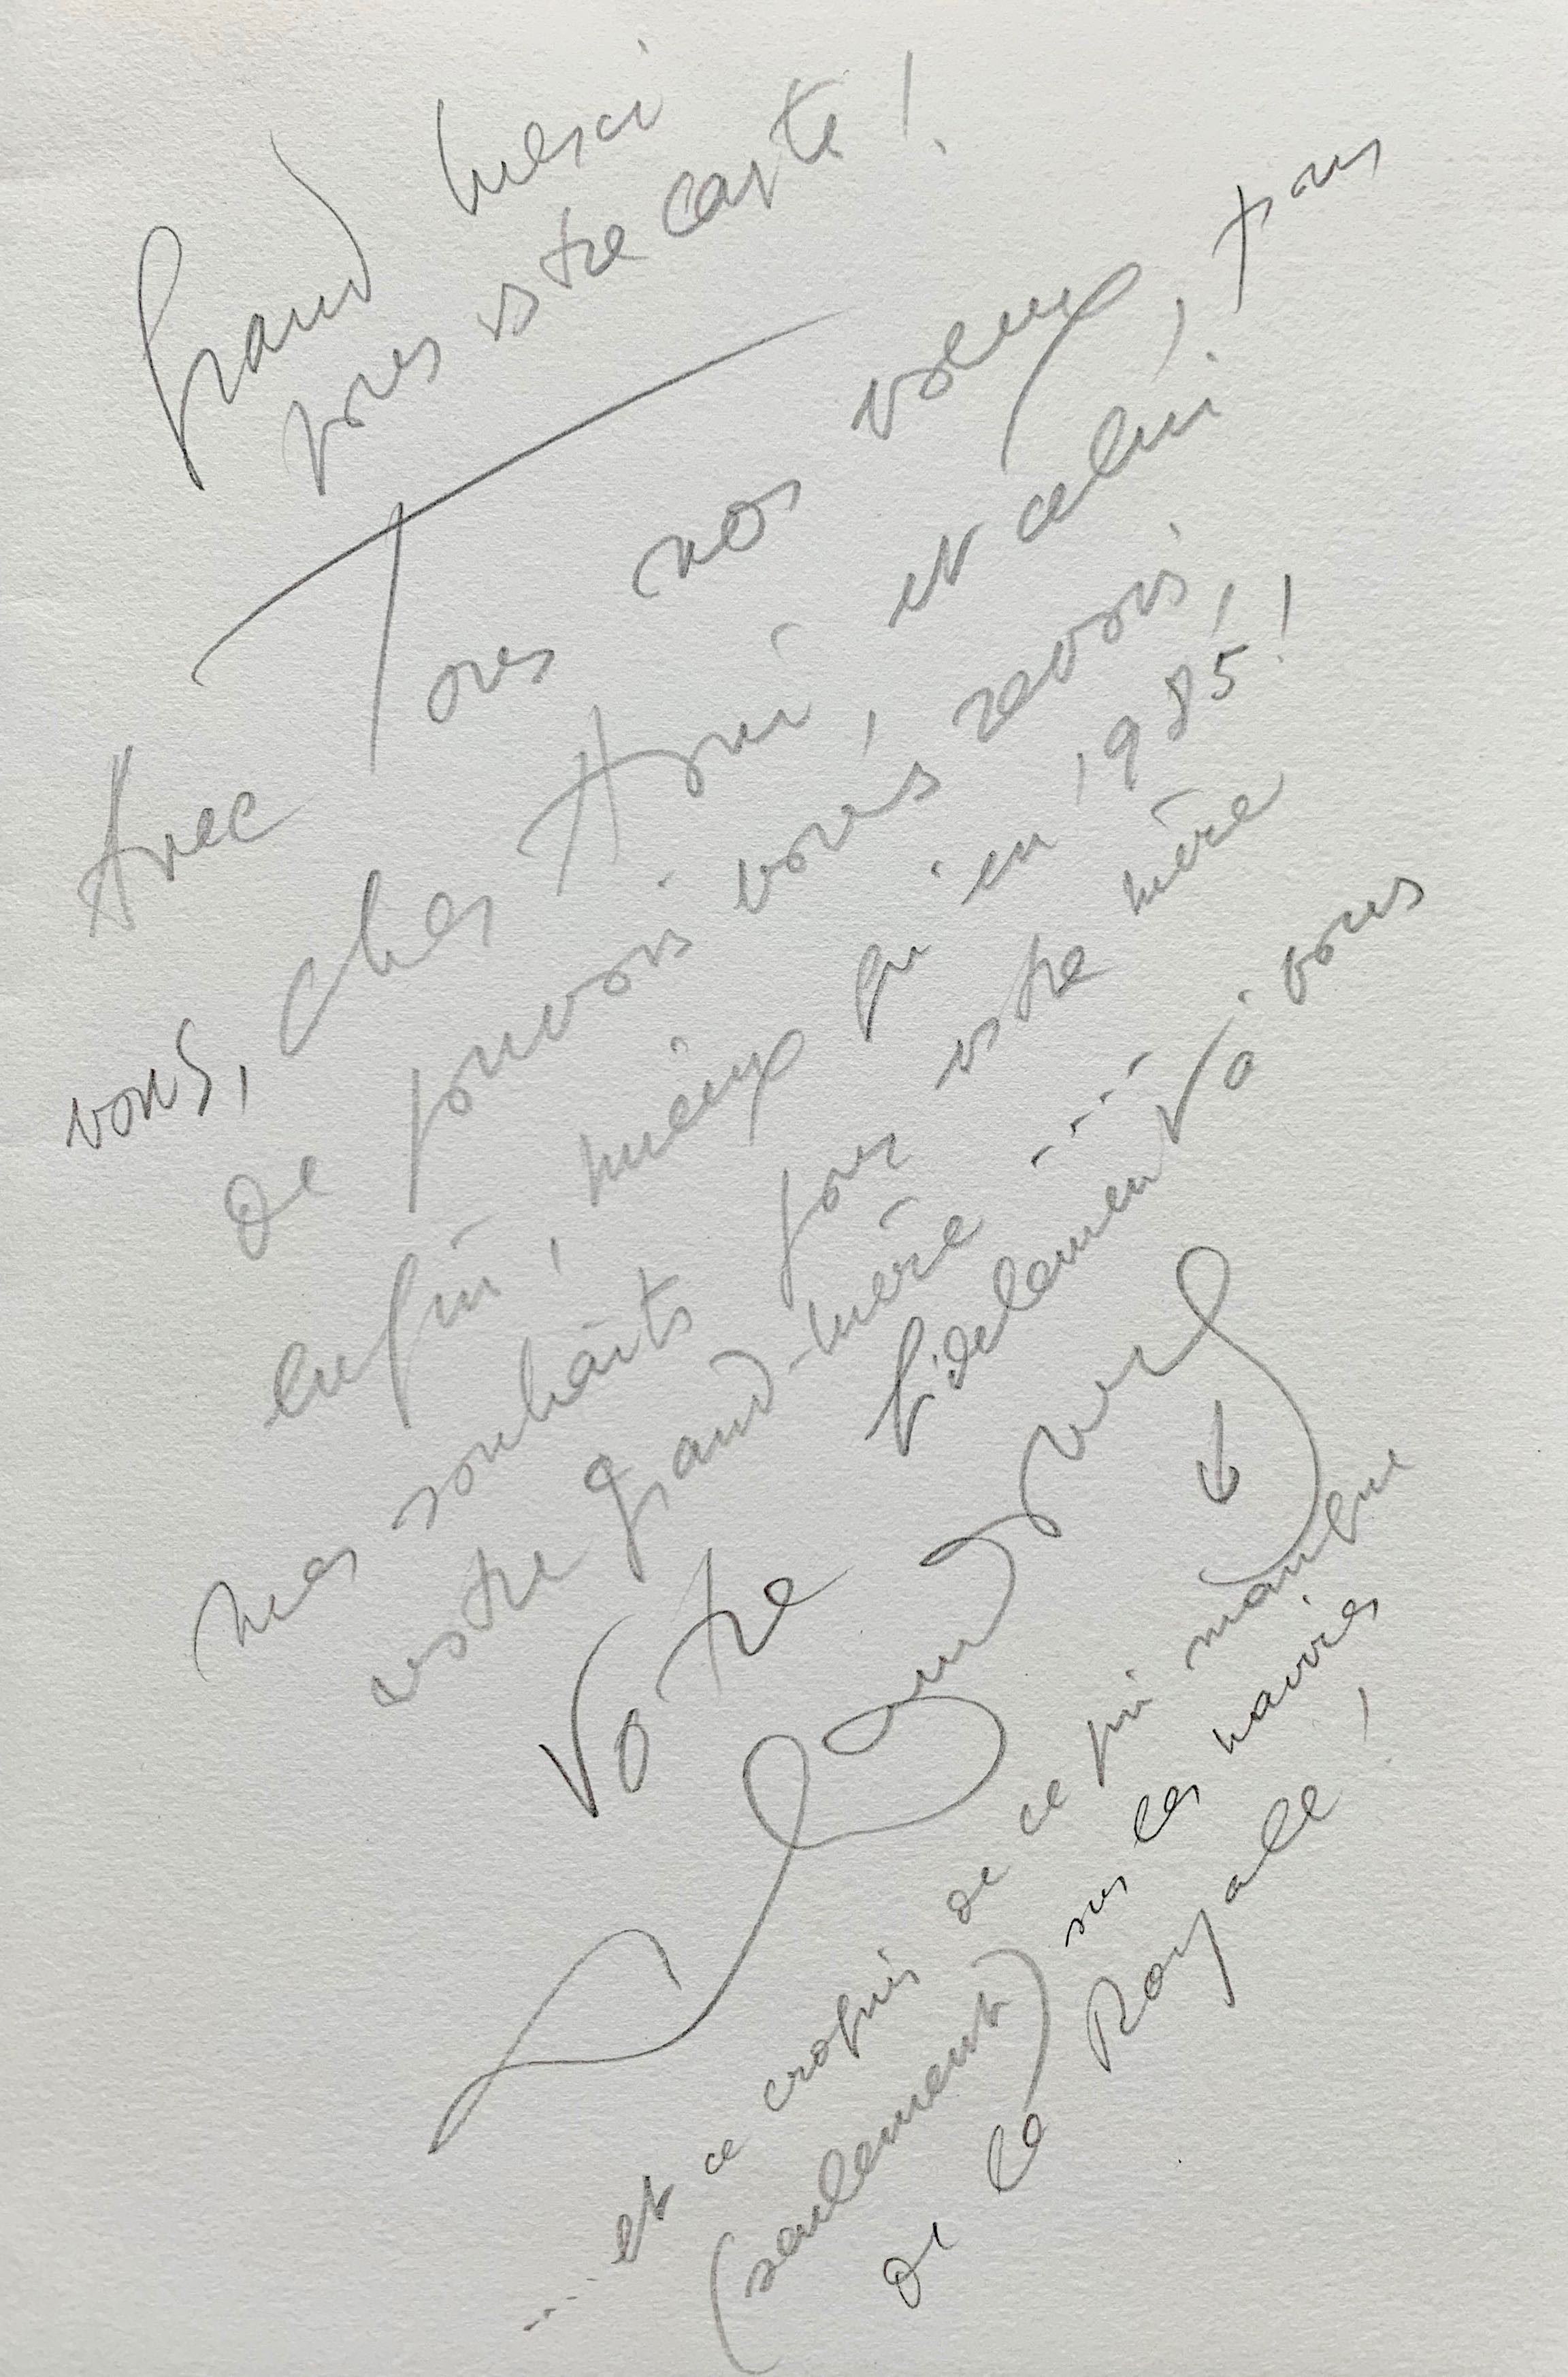 Grand merci
pour votre carte !
Avec Tous nos voeux, pour
vous, cher Ami et celui,
de pouvoir vous revoir,
enfin, mieux qu'en 1985 !
mes souhaits pour votre mère
votre grand-mère ....
fidèlement à vous
Votre
↓
.... et ce croquis de ce qui manque
(seulement) sur les navires
de la Royale !